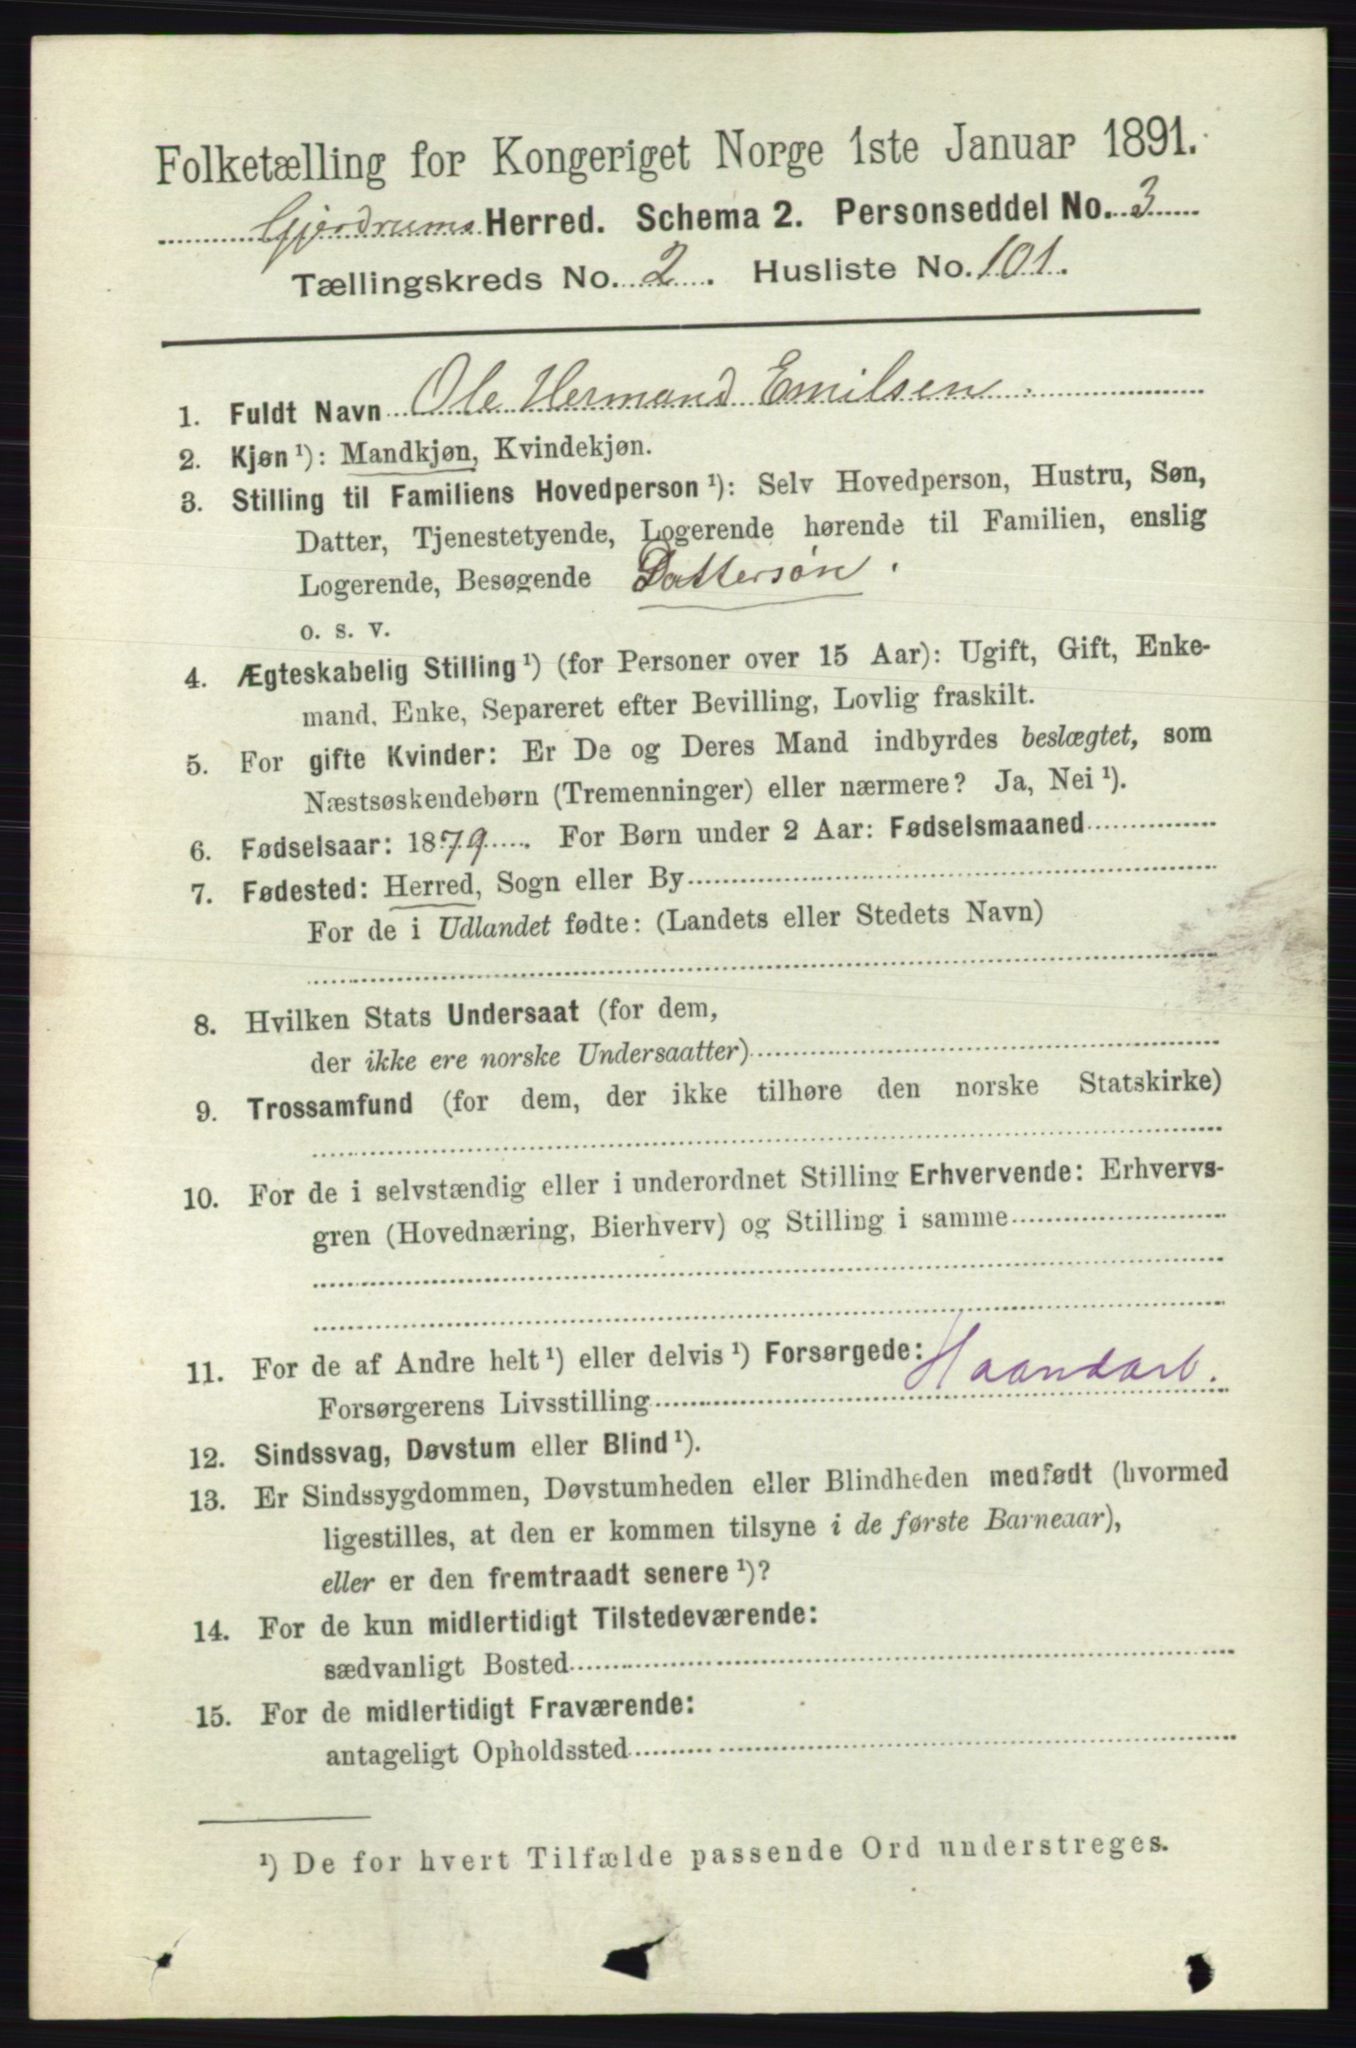 Folketælling for Kongeriget Norge 1ste Januar 1891.
Gjerdrums Herred. Schema 2. Personseddel No. 3
Tællingskreds No. 2. Husliste No. 101.
1. Fuldt Navn Ole Hermand Emilsen
2. Kjøn ¹): Mandkjøn, Kvindekjøn.
3. Stilling til Familiens Hovedperson ¹): Selv Hovedperson, Hustru, Søn,
Datter, Tjenestetyende, Logerende hørende til Familien, enslig
Logerende, Besøgende Dattersøn.
o. s. v.
4. Ægteskabelig Stilling ¹) (for Personer over 15 Aar): Ugift, Gift, Enke-
mand, Enke, Separeret efter Bevilling, Lovlig fraskilt.
5. For gifte Kvinder: Er De og Deres Mand indbyrdes beslægtet, som
Næstsøskendebørn (Tremenninger) eller nærmere? Ja, Nei ¹).
6. Fødselsaar: 1879. For Børn under 2 Aar: Fødselsmaaned
7. Fødested: Herred, Sogn eller By
For de i Udlandet fødte: (Landets eller Stedets Navn)
8. Hvilken Stats Undersaat (for dem,
der ikke ere norske Undersaatter)
9. Trossamfund (for dem, der ikke tilhøre den norske Statskirke)
10. For de i selvstændig eller i underordnet Stilling Erhvervende: Erhvervs-
gren (Hovednæring, Bierhverv) og Stilling i samme
11. For de af Andre helt ¹) eller delvis ¹) Forsørgede:
Forsørgerens Livsstilling Haandarb.
12. Sindssvag, Døvstum eller Blind ¹).
13. Er Sindssygdommen, Døvstumheden eller Blindheden medfødt (hvormed
ligestilles, at den er kommen tilsyne i de første Barneaar),
eller er den fremtraadt senere ¹)?
14. For de kun midlertidigt Tilstedeværende:
sædvanligt Bosted
15. For de midlertidigt Fraværende:
antageligt Opholdssted
¹) De for hvert Tilfælde passende Ord understreges.